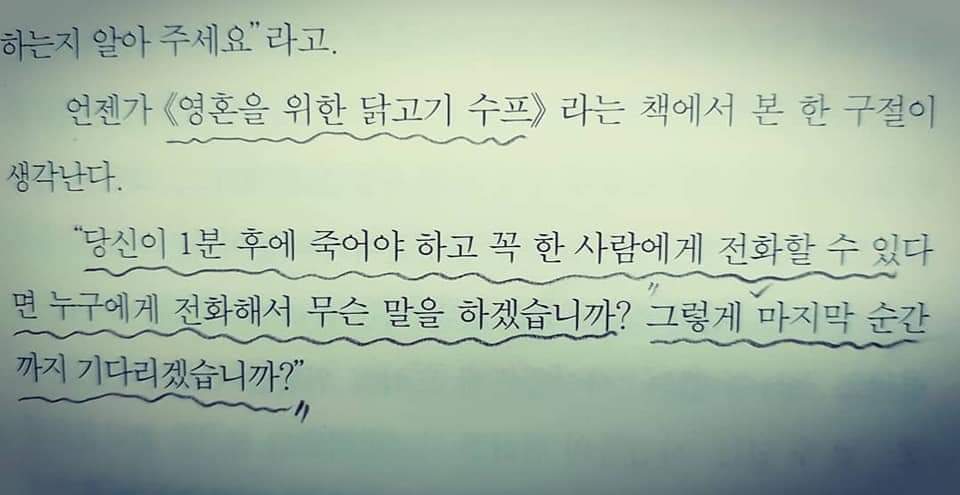 하는지 알아 주세요”라고.
언젠가 《영혼을 위한 닭고기 수프》라는 책에서 본 한 구절이
생각난다.
“당신이 1분 후에 죽어야 하고 꼭 한 사람에게 전화할 수 있다
면 누구에게 전화해서 무슨 말을 하겠습니까? 그렇게 마지막 순간
까지 기다리겠습니까?”